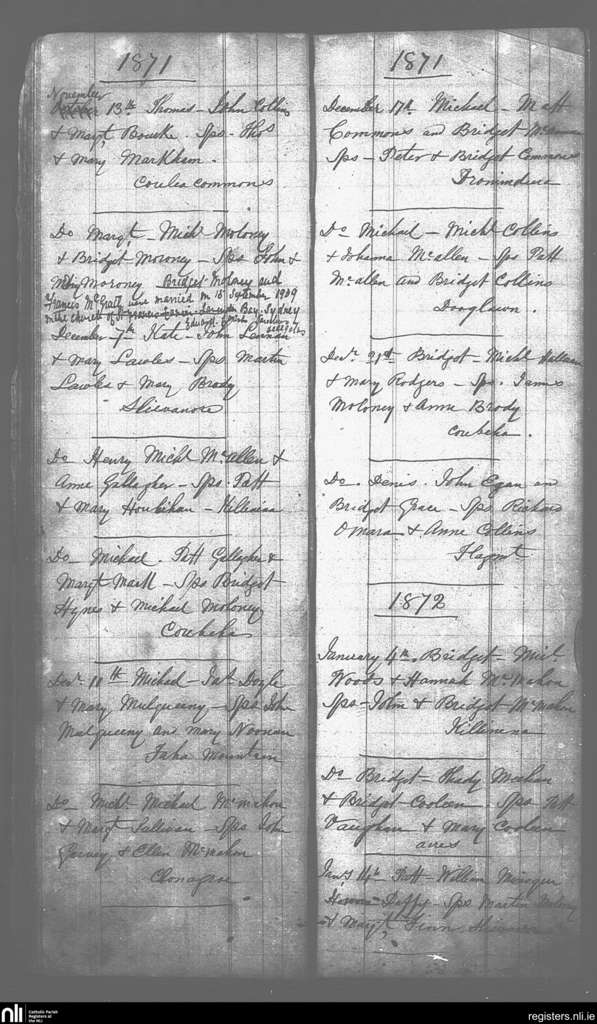 1871
November
October 13th Thomas - John Collins
& Margt Bourke. Sps - Thos
& Mary Markham.
Coulea commons
Do Margt - Michl Moloney
& Bridget Moroney - Sps John &
Mary Moroney Bridget Moloney and
Francis McGrath were married on 18th September 1909
in the church of St Francis Xavier Lavender Bay, Sydney
December 7th Kate - John Lennan
& Mary Lawles - Sps Martin
Lawles & Mary Brody
Shievanore
Do Henry Michl McAllen &
Anne Gallagher - Sps - Patt
& Mary Houlihan -
Do - Michael. Patt Gallagher &
Margt Mack - Sps Bridget
Hynes & Michael Moloney
Coubeha
Decr 11th Michael - Pat Doyle
& Mary Mulqueeny - Sps John
Mulqueeny and Mary Noonan
Faha Mountain
Do - Michl Michael McMahon
& Margt Sullivan - Sps John
Garvey & Ellen McMahon
Clonagroe
1871
December 17th Michael - Matt
Commons and Bridget
Sps - Peter & Bridget Commons
Do Michael - Michl Collins
& Johanna McAllen - Sps Patt
McAllen and Bridget Collins
Dooglawn.
Decr 21st Bridget - Michl Sullivan
& Mary Rodgers - Sps. James
Moloney & Anne Brody
Coubeha.
Do. Denis. John Egan and
Bridget Grace - Sps Richard
OMara & Anne Collins
Flagmt
1872
January 4th. Bridget - Michl
Woods & Hannah McMahon
Sps - John & Bridget McMahon
Do - Bridget - Thady Meehan
& Bridget Cooleen - Sps - Patt
Vaughan & Mary Cooleen
acres
Jany 14th Patt - William Minogue
Duffy - Sps Martin Moloney
& Margt Finn
nli
Catholic Parish
Registers at
the NLI
registers.nli.ie